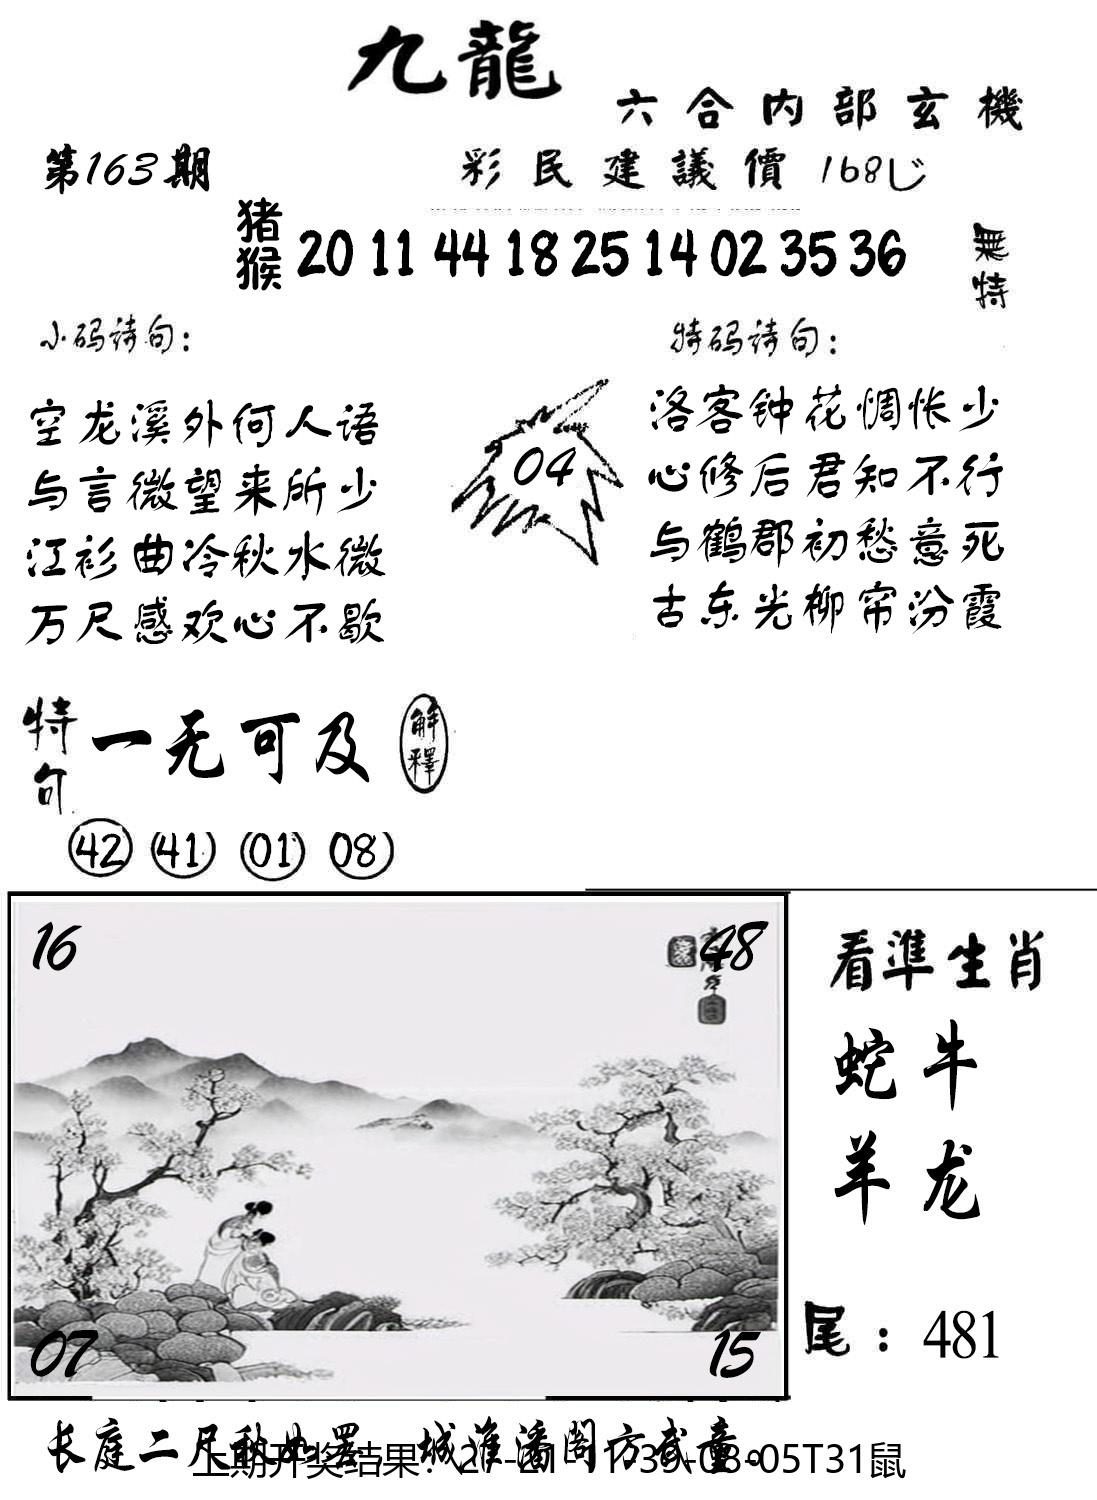 九龍
六合内部玄機
第163期
彩民建議價 168
猪猴 20 11 44 18 25 14 02 35 36
無特
小码诗句：
特码诗句：
空龙溪外何人语
与言微望来所少
江衫曲冷秋水微
万尺感欢心不歇
04
洛客钟花惆怅少
心修后君知不行
与鹤郡初愁意死
古东光柳帘汾霞
特句 一无可及 解釋
42 41 01 08
16 48
07 15
看準生肖
蛇牛
羊龙
尾：481
长庭二尺秋 城淮潘阁方武童。
上期开奖结果：27-21 39-08-05T31鼠